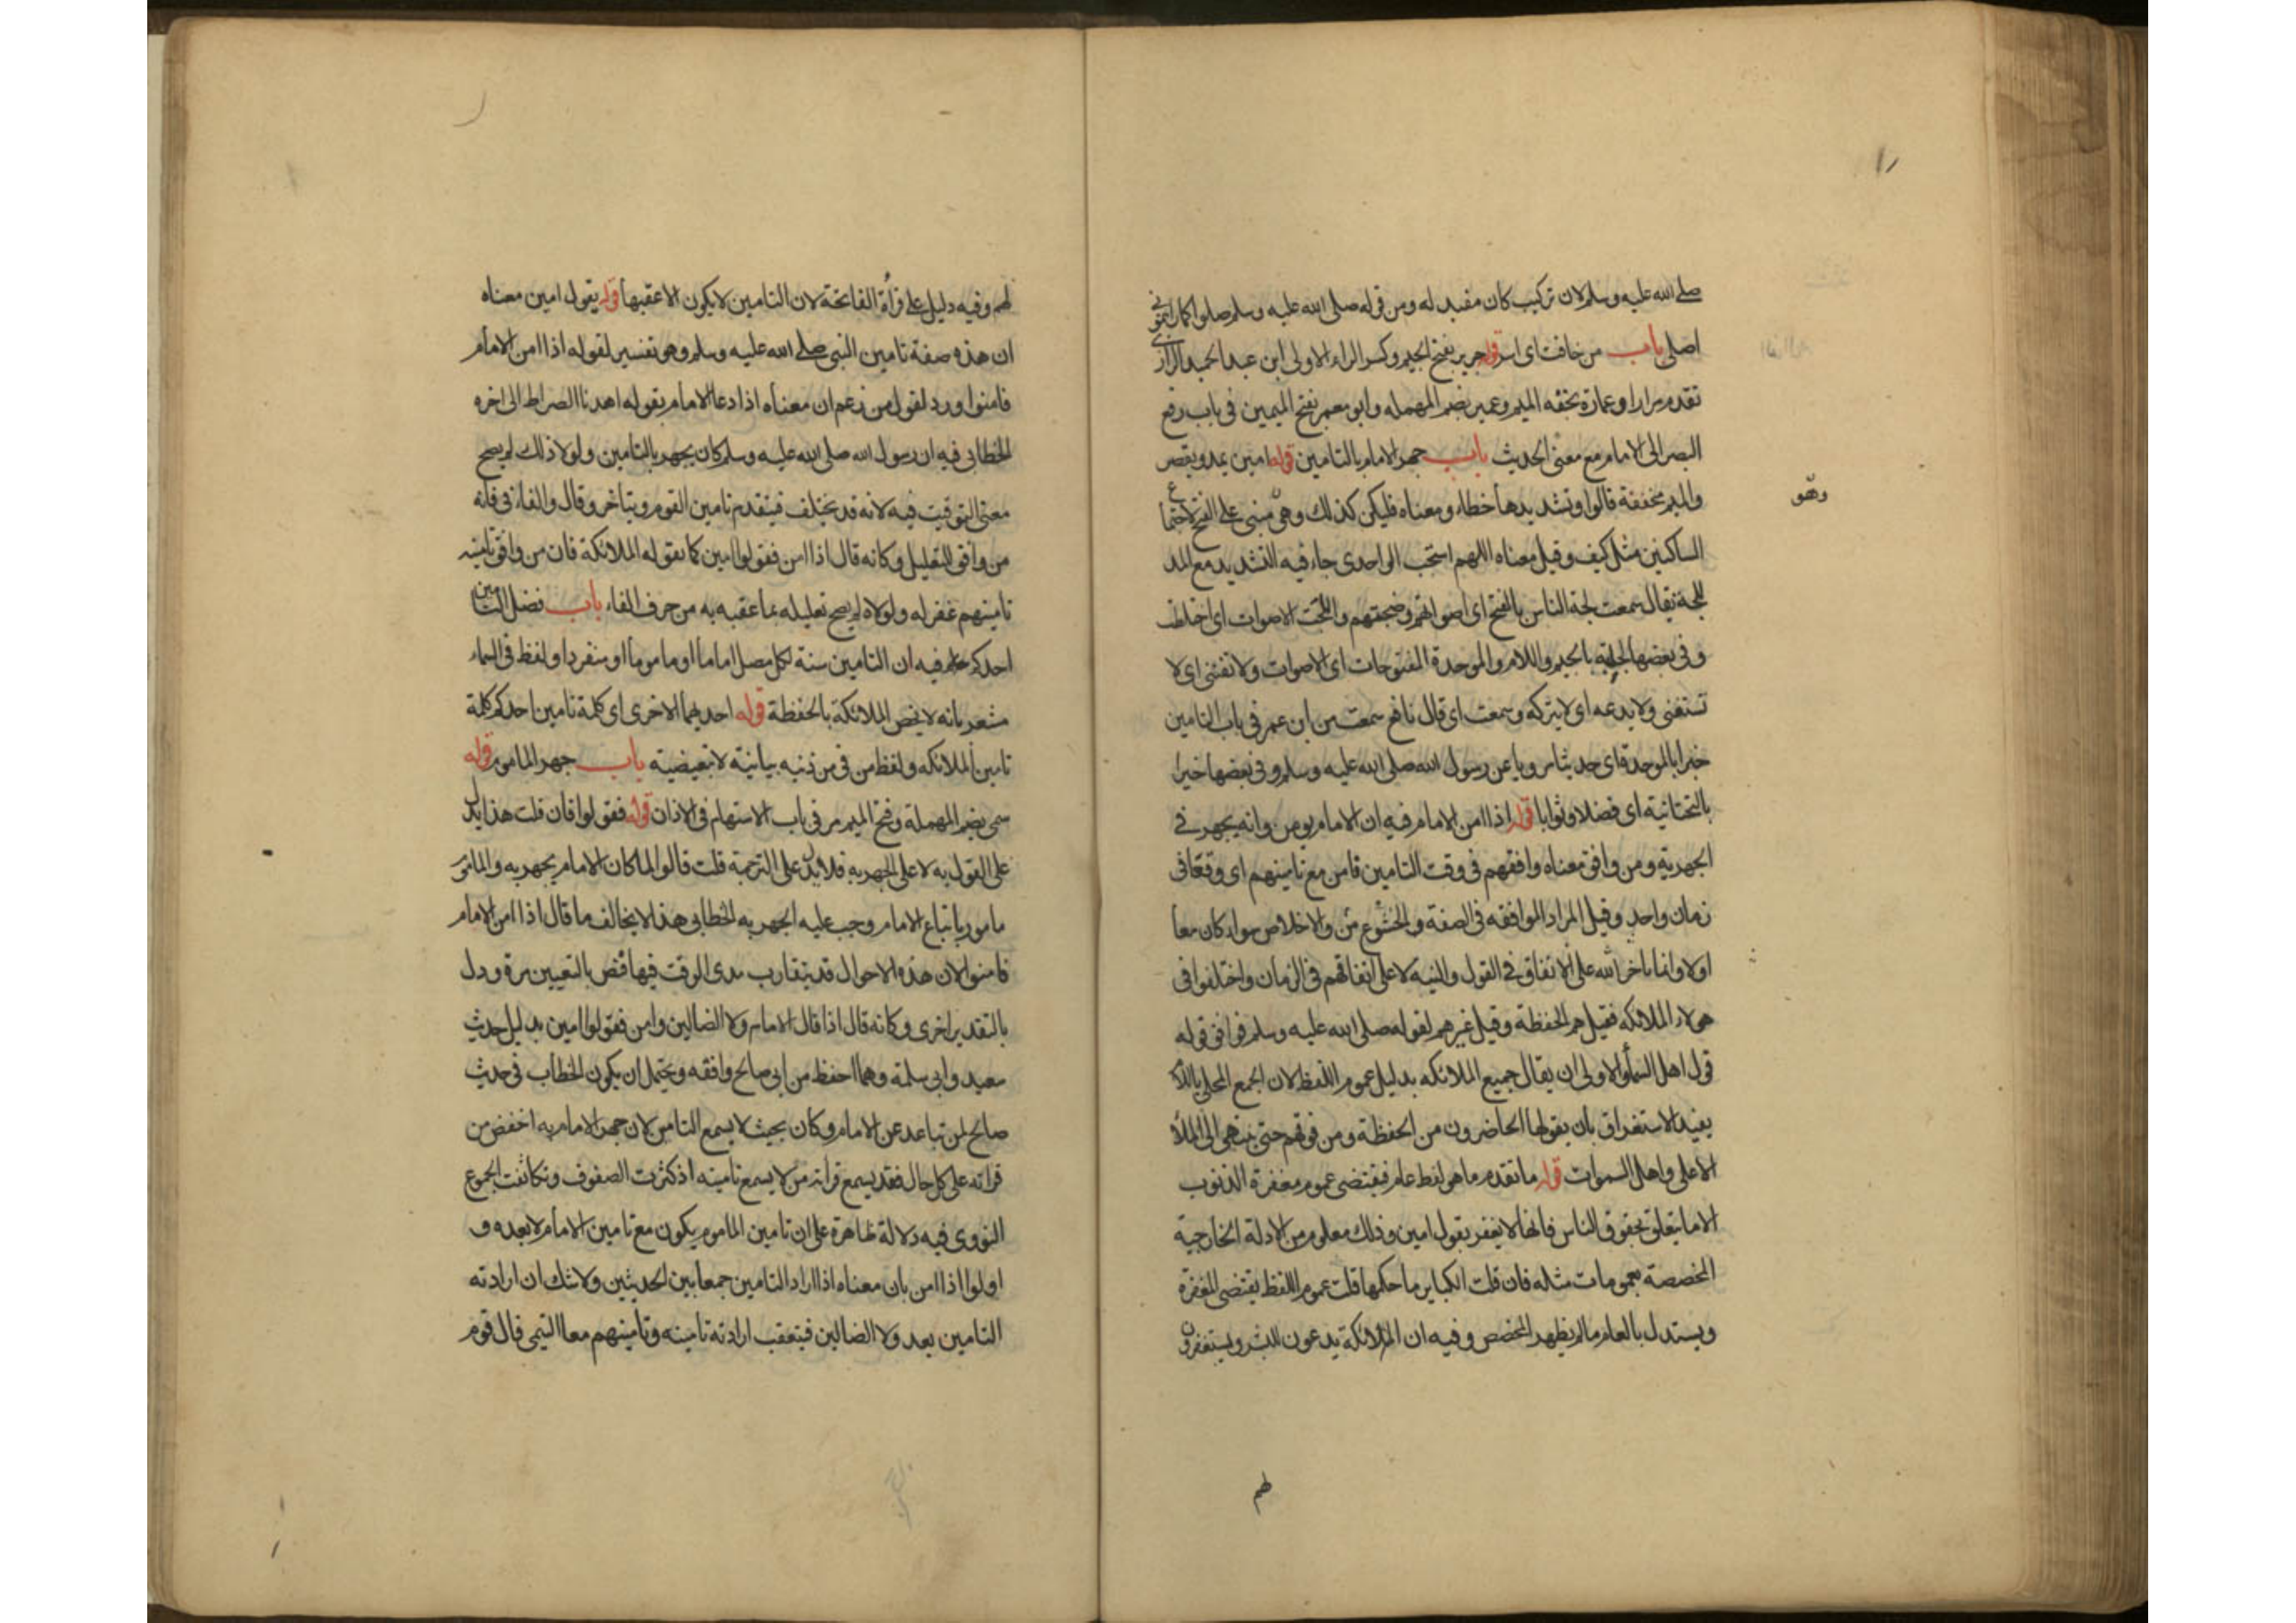 صلى الله عليه وسلم لان تركيب كان مفيد له ومن قوله صلى الله عليه وسلم صلوا كما رايتموني
اصلي باب من خافت اى اسر قوله جرير بفتح الجيم وكسر الراء الاولى ابن عبد الحميد الرازى
تقدم مرارا وعمارة بخفه الميم وعمير بضم المهمله وابو معمر بفتح الميمين فى باب رفع
البصر الى الامام مع معنى الحديث باب جهر الامام بالتامين قوله امين يمد ويقصر
والميم مخففة قالوا وتشديدها خطاء ومعناه فليكن كذلك وهى مبنى على الفتح لاجتماع
وهو
الساكنين مثل كيف وقيل معناه اللهم استجب الواحدى جاء فيه التشديد مع المد
للجة يقال سمعت لجة الناس بالفتح اى اصواتهم وضجتهم والتجت الاصوات اى اختلطت
وفى بعضها لجلبة بالجيم واللام والموحدة المفتوحات اى الاصوات ولا تفتنى اى لا
تستغنى ولا يدعه اى لا يتركه وسمعت اى قال نافع سمعت من ابن عمر فى باب التامين
خبرا بالموحدة اى حديثا مرويا عن رسول الله صلى الله عليه وسلم وفى بعضها خيرا
بالتحتانية اى فضلا وثوابا قوله اذا امن الامام فيه ان الامام يومن وانه يجهر فى
الجهرية ومن وافق معناه وافقهم فى وقت التامين فامن مع تامينهم اى وقعا فى
زمان واحد وقيل المراد الموافقه فى الصفة والخشوع من والاخلاص سواء كان معا
اولا وانما اخر الله على الاتفاق فى القول والنيه لا على اتفاقهم فى الزمان واختلفوا فى
هولاء الملائكه فقيل هم الحفظة وقيل غيرهم لقوله صلى الله عليه وسلم فوافق قوله
قول اهل السماء والاولى ان يقال جميع الملائكه بدليل عموم اللفظ لان الجمع المحلى باللام
يفيد الاستغراق بان يقولها الحاضرون من الحفظة ومن فوقهم حتى ينتهى الى الملأ
الاعلى واهل السموات قوله ما تقدم ما هو لفظ عام فيقتضى عموم مغفرة الذنوب
الا ما يتعلق بحقوق الناس فانها لا يغفر بقول امين وذلك معلوم من الادلة الخارجية
المخصصة بعمومات مثله فان قلت الكباير ما حكمها قلت عموم اللفظ يقتضى المغفرة
ويستدل بالعام ما لم يظهر المخصص وفيه ان الملائكة يدعون للبشر ويستغفرون
لهم
لهم وفيه دليل على قرأة الفاتحة لان التامين لا يكون الا عقبها قوله يقول امين معناه
ان هذه صفة تامين النبى صلى الله عليه وسلم وهو تفسير لقوله اذا امن الامام
فامنوا ورد لقول من زعم ان معناه اذا دعا الامام بقوله اهدنا الصراط الى اخره
الخطابى فيه ان رسول الله صلى الله عليه وسلم كان يجهر بالتامين ولولا ذلك لم يصح
معنى التوقيت فيه لانه قد يختلف فيتقدم تامين القوم ويتاخر وقال والفاء فى فانه
من وافق للتعليل وكانه قال اذا امن فقولوا امين كما يقوله الملائكة فان من وافق تامينه
تامينهم غفر له ولولاه لم يصح تعليله بما عقبه به من حرف الفاء باب فضل التامين
احدكم عام فيه ان التامين سنة لكل مصل اماما او ماموما او منفردا ولفظ فى السماء
مشعر بانه لا يخص الملائكة بالحفظة قوله احديهما الاخرى اى كلمة تامين احدكم كلمة
تامين الملائكه ولفظ من فى من ذنبه بيانية لا تبعيضية باب جهر الماموم قوله
سمى بضم المهملة وفتح الميم مر فى باب الاستهام فى الاذان قوله فقولوا فان قلت هذا يدل
على القول به لا على الجهر به فلا يدل على الترجمة قلت قالوا لما كان الامام يجهر به والماموم
مامور باتباع الامام وجب عليه الجهر به الخطابى هذا لا يخالف ما قال اذا امن الامام
فامنوا لان هذه الاحوال قد يتقارب مدى الوقت فيها فنص بالتعيين مرة ودل
بالتقدير اخرى وكانه قال اذا قال الامام ولا الضالين وامن فقولوا امين بدليل حديث
سعيد وابى سلمة وهما احفظ من ابى صالح وافقه ويحتمل ان يكون الخطاب فى حديث
صالح لمن تباعد عن الامام وكان بحيث لا يسمع التامين لان جهر الامام به اخفض من
قراته على كل حال فقد يسمع قراته من لا يسمع تامينه اذ كثرت الصفوف وتكاثفت الجموع
النووى فيه دلالة ظاهرة على ان تامين الماموم يكون مع تامين الامام لا بعده و
اولوا اذا امن بان معناه اذا اراد التامين جمعا بين الحديثين ولا شك ان ارادته
التامين بعد ولا الضالين فيتعقب ارادته تامينه وتامينهم معا التيمى قال قوم